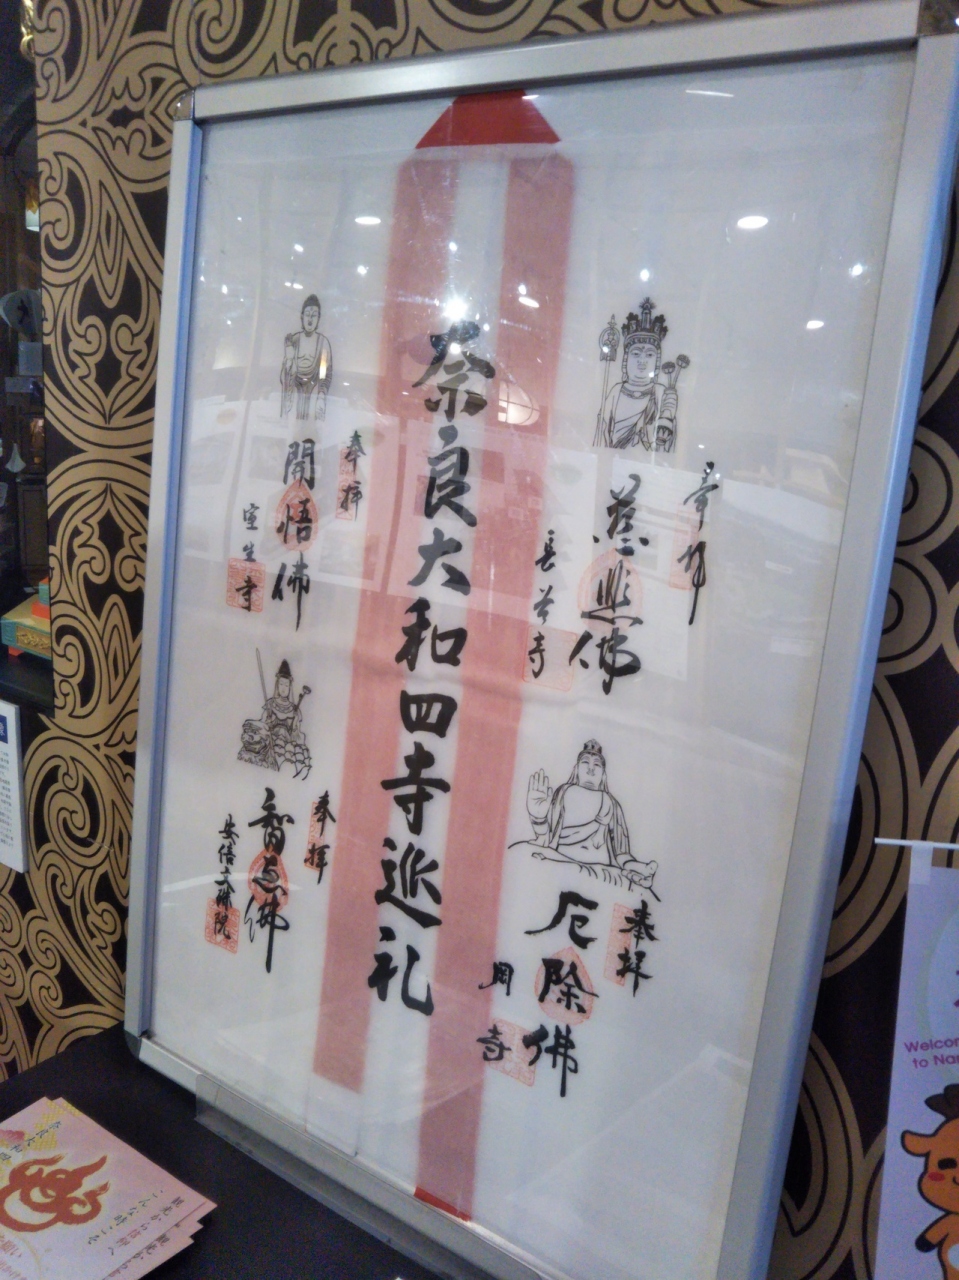 奈良大和四寺巡礼
奉拝
慈悲佛
長谷寺
奉拝
厄除佛
岡寺
奉拝
開悟佛
室生寺
奉拝
智恵佛
安倍文殊院
Welcom
to Nar